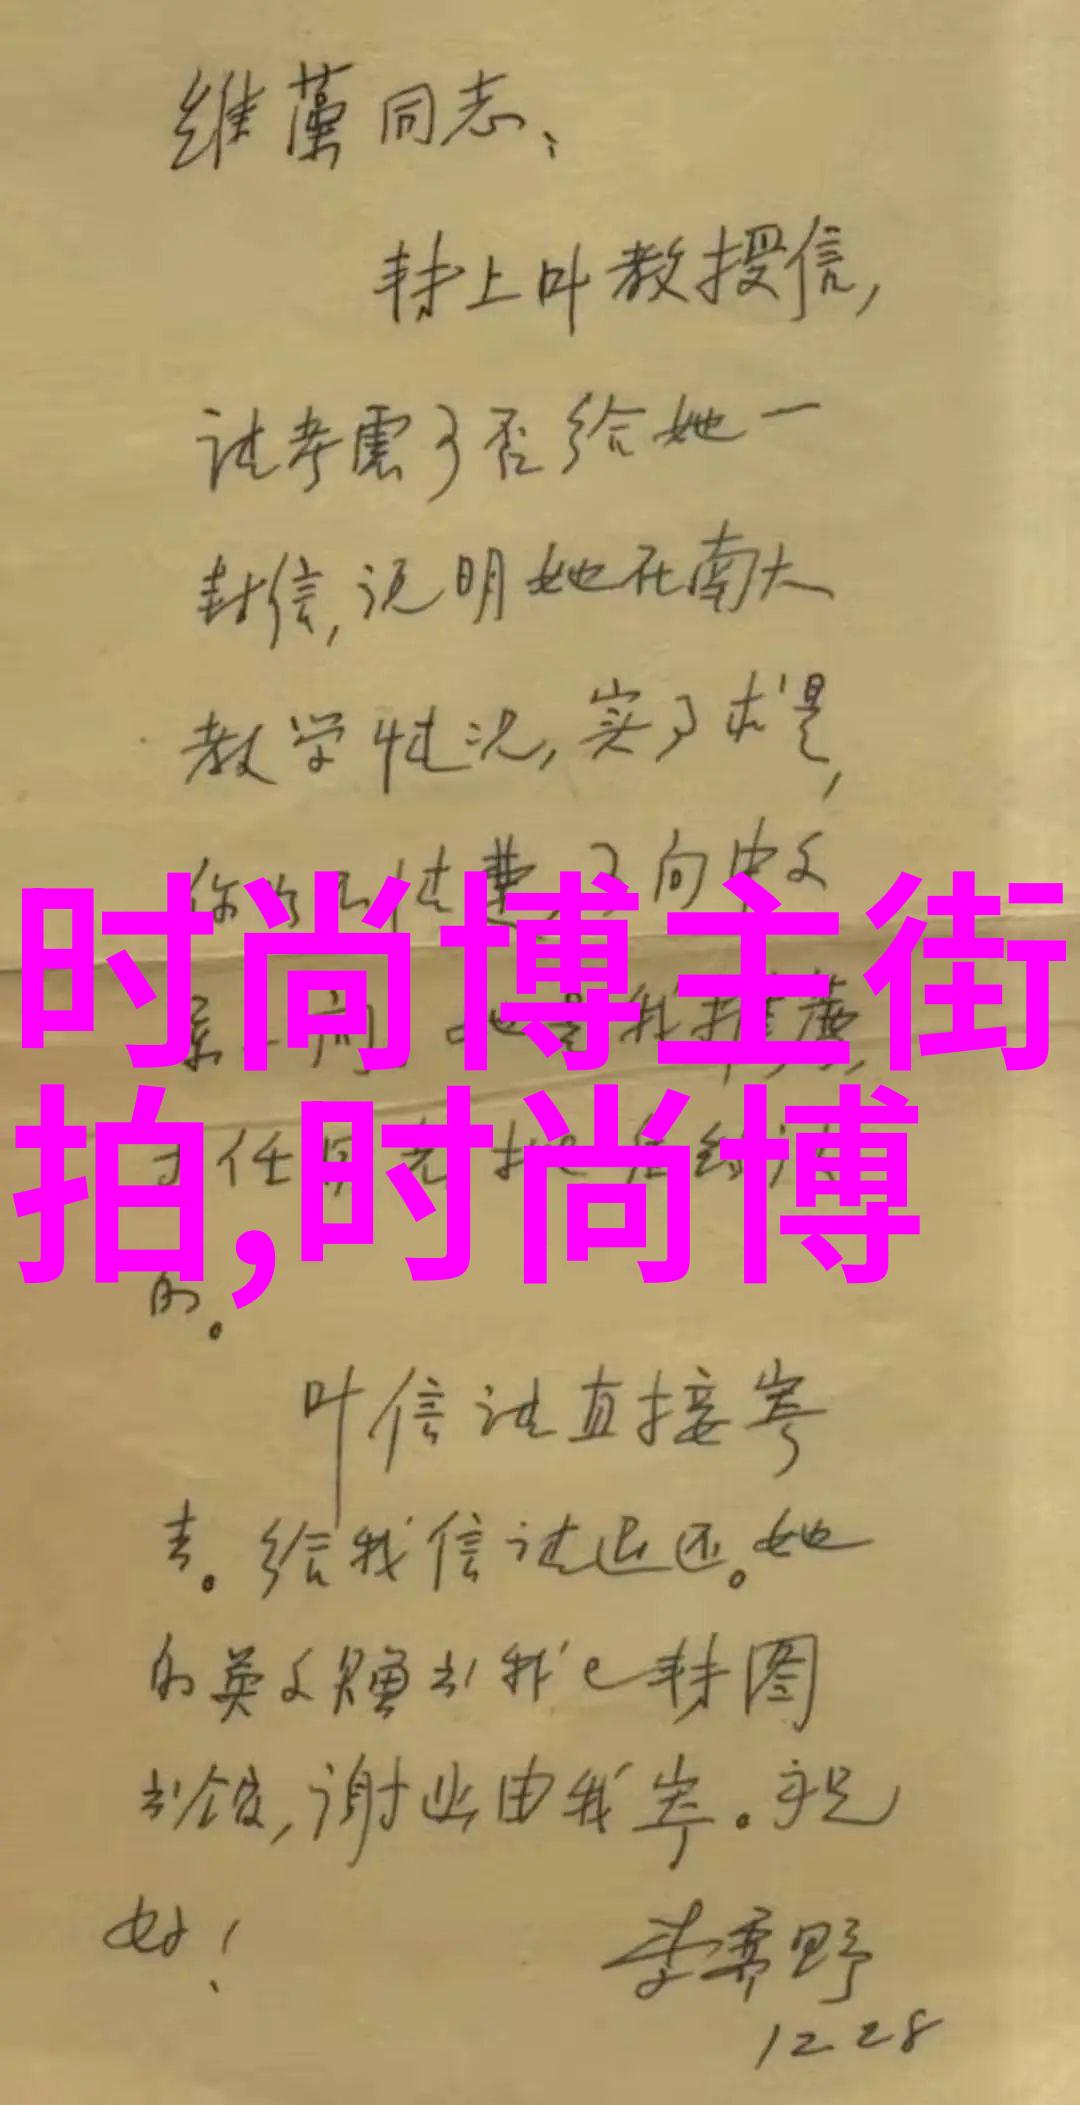 维藻同志:
转上叶教授信,
请考虑可否给她一
封信,说明她在南大
教学情况,实事求是,
你如不清楚,可向中文
系一问。她是我推荐,
的。
叶信请直接寄
去。给我信请退还。她
的英文赠书我已转图
书馆,谢此由我寄。祝
好!
李霁野
12.28
时尚博主街
拍,时尚博